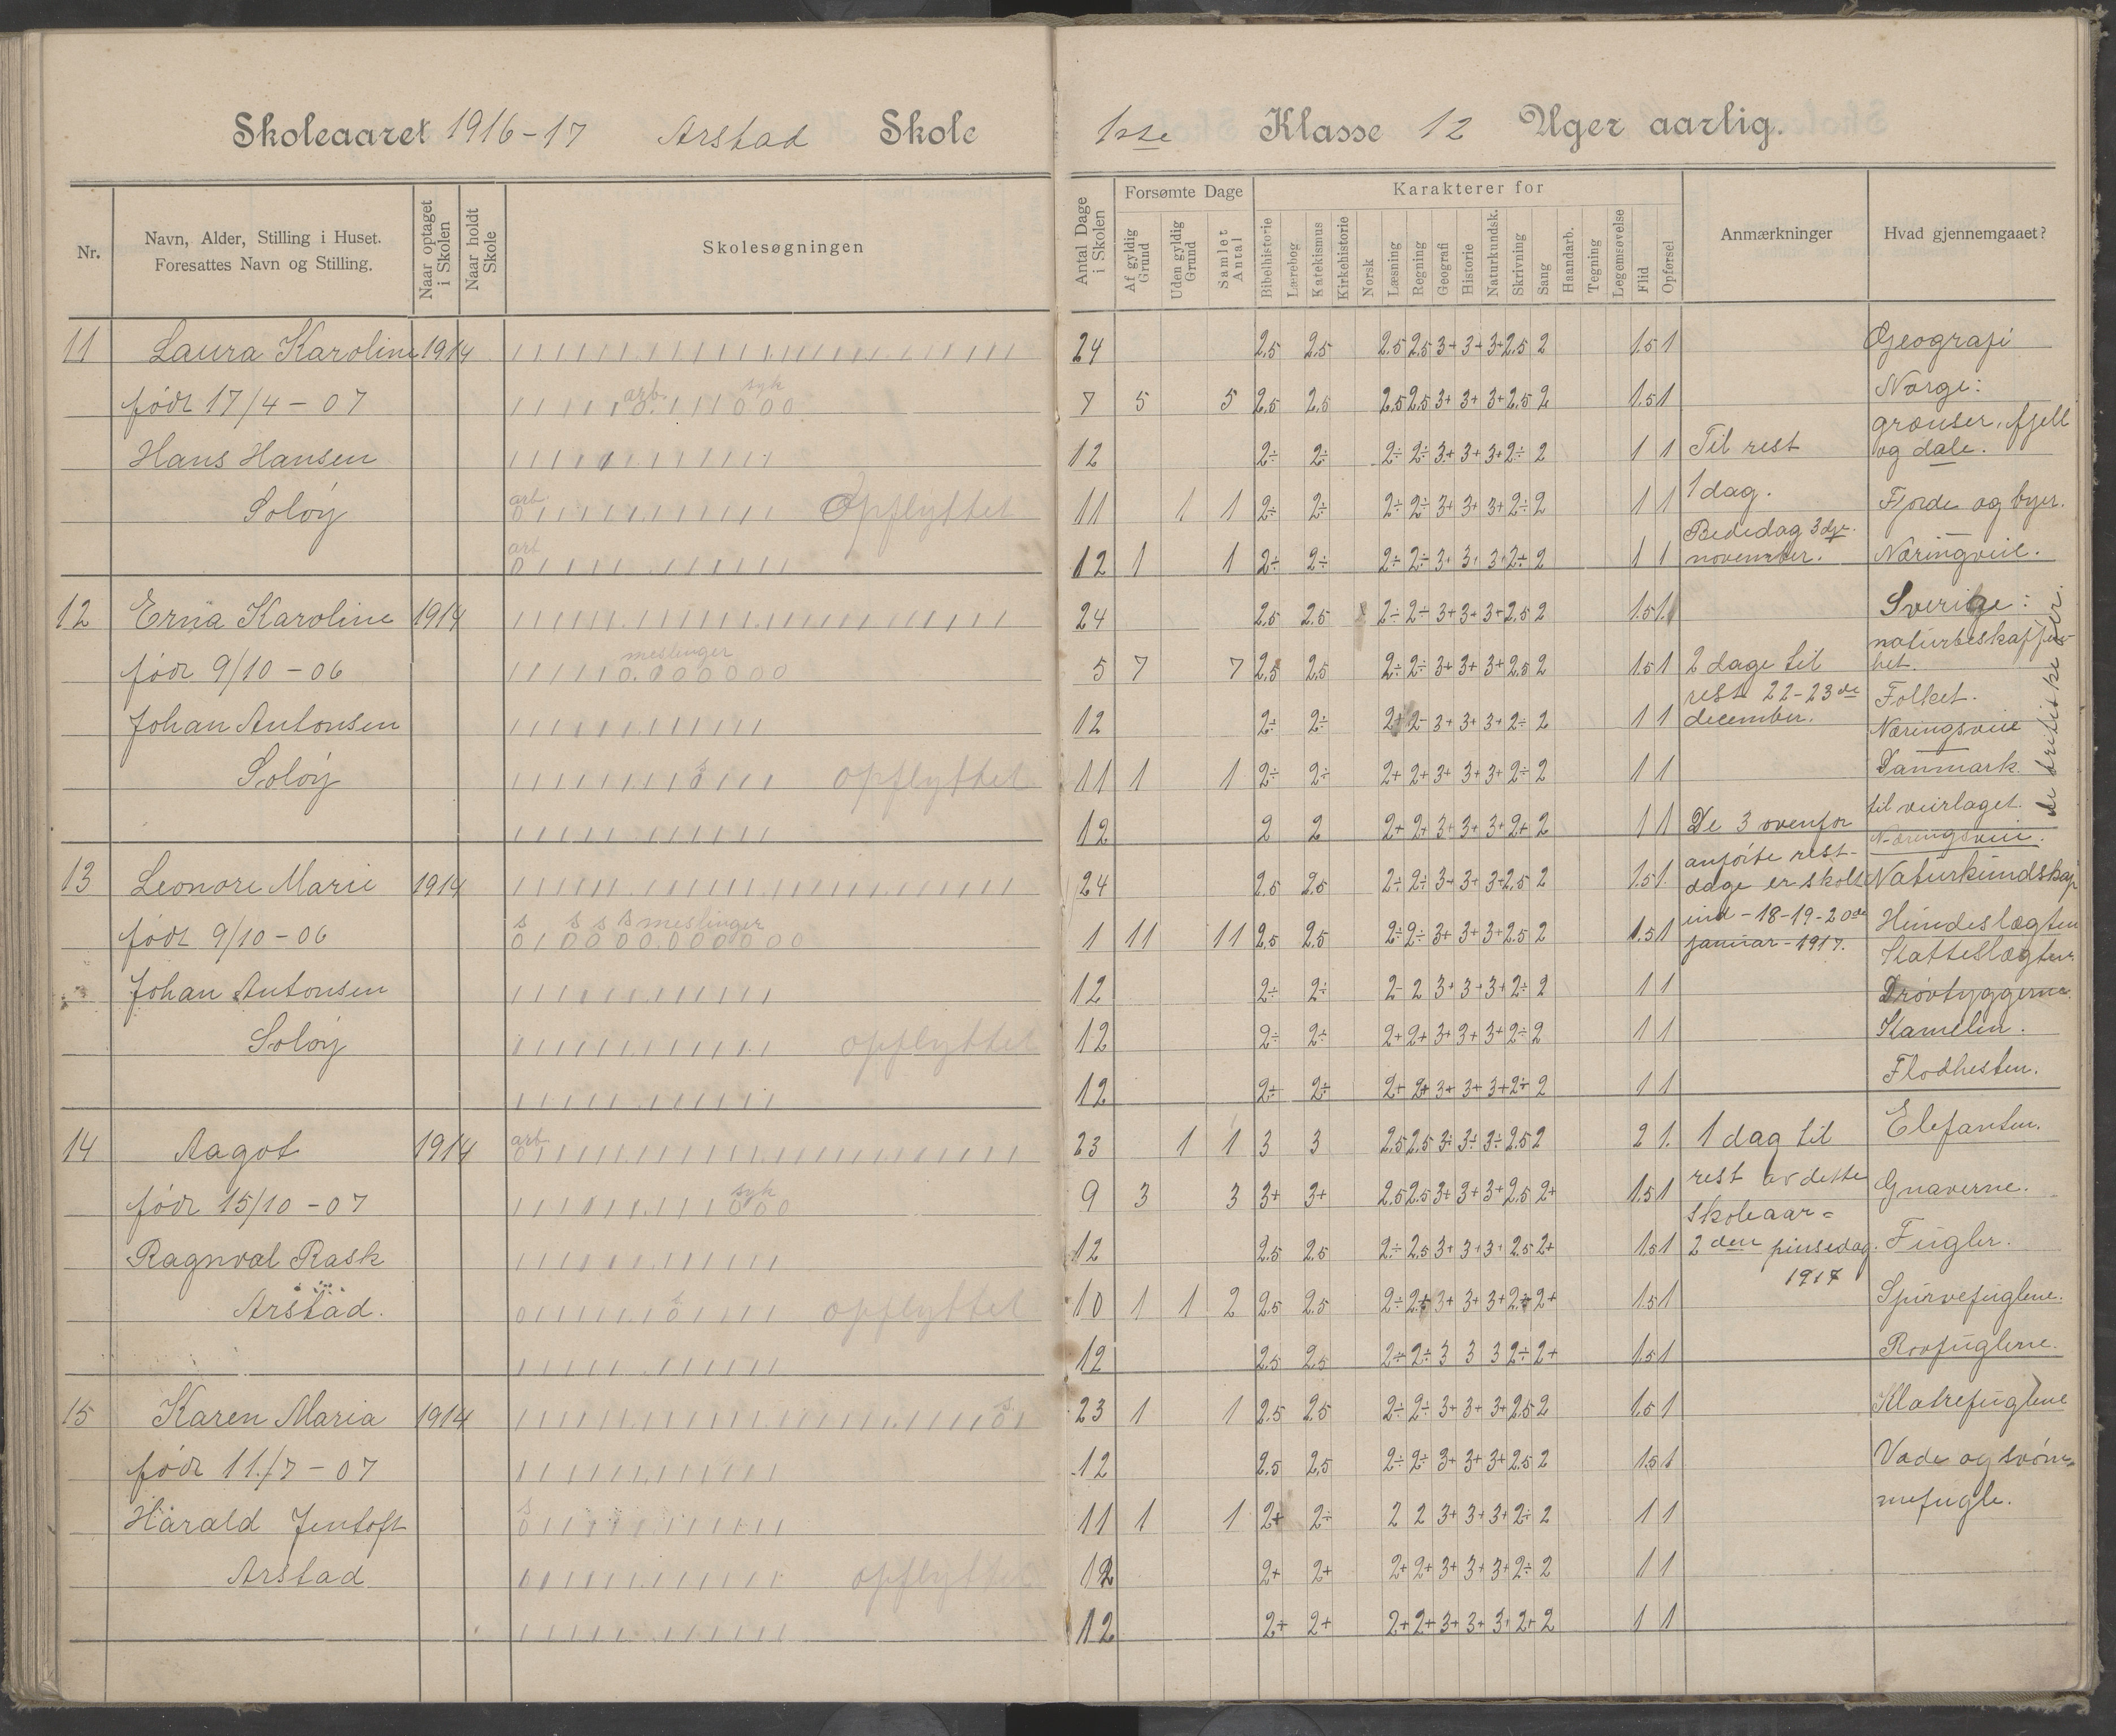 Skoleaaret 1916-17 Arstad Skole
1ste Klasse 12 Uger aarlig.
Nr.
Navn, Alder, Stilling i Huset.
Foresattes Navn og Stilling.
Naar optaget i Skolen
Naar holdt Skole
Skolesøgningen
Antal Dage i Skolen
Forsømte Dage
Af gyldig Grund
Uden gyldig Grund
Samlet Antal
Karakterer for
Bibelhistorie
Lærebog
Katekismus
Kirkehistorie
Norsk
Læsning
Regning
Geografi
Historie
Naturkundsk.
Skrivning
Sang
Haandarb.
Tegning
Legemsøvelse
Flid
Opførsel
Anmærkninger
Hvad gjennemgaaet?
11 Laura Karoline 1914
født 17/4 - 07
arb. syk
Hans Hansen
Soløy
arb. Opflyttet
arb
24 2.5 2.5 2.5 2.5 3+ 3+ 3+ 2.5 2 1.5 1
7 5 5 2.5 2.5 2.5 2.5 3+ 3+ 3+ 2.5 2 1.5 1
12 2÷ 2÷ 2÷ 2÷ 3+ 3+ 3+ 2÷ 2 1 1
11 1 1 2÷ 2÷ 2÷ 2÷ 3+ 3+ 3+ 2÷ 2 1 1
12 1 1 2÷ 2÷ 2÷ 2÷ 3+ 3+ 3+ 2÷ 2 1 1
12 Erna Karoline 1914
født 9/10 - 06
meslinger
Johan Antonsen
Soløy
s opflyttet
24 2.5 2.5 2÷ 2÷ 3+ 3+ 3+ 2.5 2 1.5 1
5 7 7 2.5 2.5 2÷ 2÷ 3+ 3+ 3+ 2.5 2 1.5 1
12 2÷ 2÷ 2+ 2- 3+ 3+ 3+ 2÷ 2 1 1
11 1 1 2÷ 2÷ 2+ 2+ 3+ 3+ 3+ 2÷ 2 1 1
12 2 2 2+ 2+ 3+ 3+ 3+ 2+ 2 1 1
13 Leonore Marie 1914
født 9/10 - 06
s s s s meslinger
Johan Antonsen
Soløy
opflyttet
24 2.5 2.5 2÷ 2÷ 3+ 3+ 3+ 2.5 2 1.5 1
1 11 11 2.5 2.5 2÷ 2÷ 3+ 3+ 3+ 2.5 2 1.5 1
12 2÷ 2÷ 2- 2 3+ 3+ 3+ 2÷ 2 1 1
12 2÷ 2÷ 2+ 2+ 3+ 3+ 3+ 2÷ 2 1 1
12 2÷ 2÷ 2+ 2+ 3+ 3+ 3+ 2÷ 2 1 1
14 Aagot 1914
arb.
født 15/10 - 07
syk
Ragnval Rask
Arstad.
s opflyttet
23 1 1 3 3 2.5 2.5 3÷ 3÷ 3÷ 2.5 2 2 1
9 3 3 3+ 3+ 2.5 2.5 3+ 3+ 3+ 2.5 2+ 1.5 1
12 2.5 2.5 2÷ 2.5 3+ 3+ 3+ 2.5 2+ 1.5 1
10 1 1 2 2.5 2.5 2÷ 2+ 3+ 3+ 3+ 2÷ 2+ 1.5 1
12 2.5 2.5 2÷ 2÷ 3 3 3 2÷ 2+ 1.5 1
15 Karen Maria 1914
s.
født 11/7 - 07
Harald Jentoft
s
Arstad
opflyttet
23 1 1 2.5 2.5 2÷ 2÷ 3+ 3+ 3+ 2.5 2 1.5 1
12 2.5 2.5 2÷ 2÷ 3+ 3+ 3+ 2.5 2 1.5 1
11 1 1 2+ 2÷ 2 2 3+ 3+ 3+ 2÷ 2 1 1
12 2+ 2+ 2+ 2+ 3+ 3+ 3+ 2÷ 2 1 1
12 2+ 2+ 2+ 2+ 3+ 3+ 3+ 2+ 2 1 1
Til rest
1 dag.
Bededag 3dje
november.
2 dage til
rest 22-23de
december.
De 3 ovenfor
anførte rest-
dage er skolt
ind - 18-19-20de
januar - 1917.
1 dag til
rest av dette
skoleaar =
2den pinsedag.
1917
Geografi
Norge:
grænser, fjell
og dale.
Fjorde og byer.
Næringveie.
Sverige:
naturbeskaffen-
het.
Folket.
Næringsveie
Danmark
til veirlaget.
Næringsveie.
de britiske øer.
Naturkundskap
Hundeslægten
Katteslægten
Drøvtyggerne.
Kamelen.
Flodhesten.
Elefanten.
Gnaverne.
Fugler.
Spurvefuglene.
Rovfuglene.
Klatrefuglene
Vade og svøm-
mefugle.